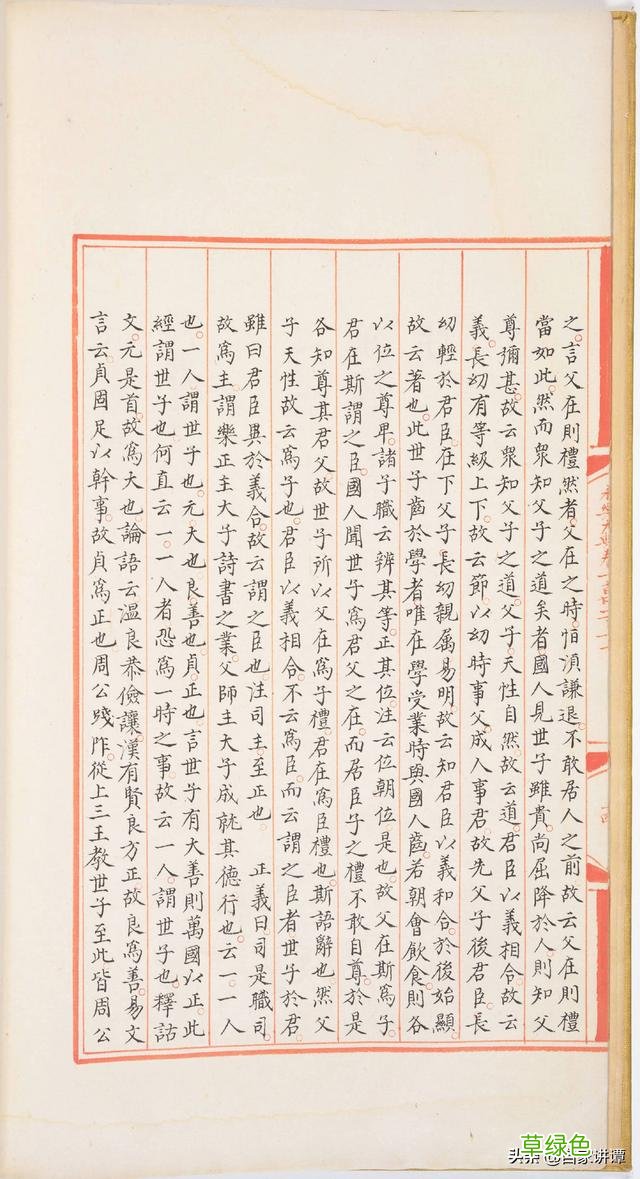 之言父在則禮然者父在之時怕湏謙退不敢居人之前故云父在則禮
當如此然而衆知父子之道矣者國人見世子雖貴尚屈降於人則知父
尊彌甚故云衆知父子之道父子天性自然故云道君臣以義相合故云
義長幼有等級上下故云節以幼時事父成人事君故先父子後君臣長
幼輕於君臣在下父子長幼親属易明故云知君臣以義和合於後始顯
故云著也此世子齒於學者唯在學受業時與國人齒若朝會飲食則各
以位之尊卑諸子職云辨其等正其位注云位朝位是也故父在斯爲子
君在斯謂之臣國人聞世子爲君父之在而居臣子之禮不敢自尊於是
各知尊其君父故世子所以父在爲子禮君在爲臣禮也斯語辭也然父
子天性故云爲子也君臣以義相合不云爲臣而云謂之臣者世子於君
雖曰君臣異於義合故云謂之臣也注司主至正也　正義曰司是職司
故爲主謂樂正主大子詩書之業父師主大子成就其德行也云一一人
也一人謂世子也元大也良善也貞正也言世子有大善則萬國以正此
經謂世子也何直云一一人者恐爲一時之事故云一人謂世子也釋詁
文元是首故爲大也論語云溫良恭儉讓漢有賢良方正故良爲善易文
言云貞固足以幹事故貞爲正也周公踐阼從上三王教世子至此皆周公
永樂大典卷
草绿色
头条 @百家讲谭